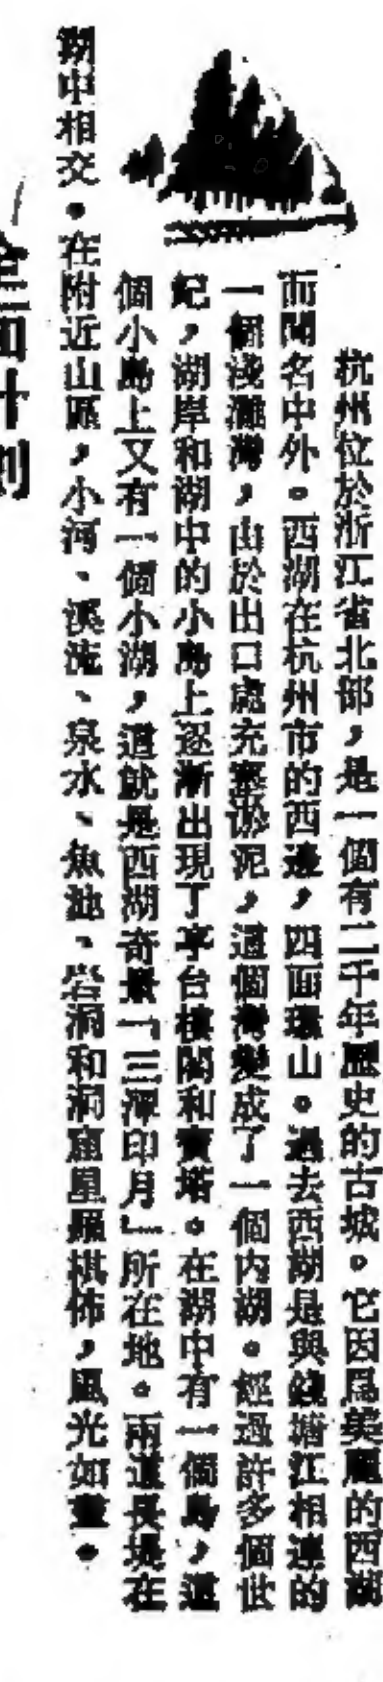 杭州位於浙江省北部，是一個有二千年歷史的古城。它因爲美麗的西湖
而聞名中外。西湖在杭州市的西邊，四面環山。過去西湖是與錢塘江相連的
一個淺灘灣，由於出口處充塞淤泥，這個灣變成了一個内湖。經過許多個世
紀，湖岸和湖中的小島上逐漸出現了亭台樓閣和寶塔。在湖中有一個島，這
個小島上又有一個小湖，這就是西湖奇景「三潭印月」所在地。兩道長堤在
湖中相交。在附近山區，小河、溪流、泉水、魚池、岩洞和洞窟星羅棋佈，風光如畫。